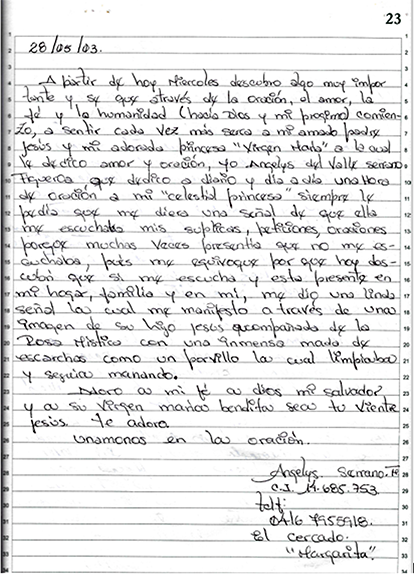 23
28/05/03.
A partir de hoy Miercoles descubro algo muy impor
tante y se que através de la oración, el amor, la
fé y la humanidad (hacia Dios y mi progimo) comien-
zo, a sentir cada vez más serca a mi amado padre
Jesús y mi adorada princesa "Virgen María" a la cual
le dedico amor y oración, yo Angelys del Valle Serrano
Figueroa, que dedico a diario y día a día una Hora
de oración a mi "celestial princesa" siempre le
pedia que me diera una señal de que ella
me escuchaba mis suplicas, peticiones, oraciones
porque muchas veces presentia que no me es-
cuchaba, pues me equivoque por que hoy des-
cubri que si me escucha y esta presente en
mi hogar, familia y en mi, me dio una linda
señal la cual me manifesto a través de una
imagen de su hijo Jesús acompañado de la
Rosa Mistica con una inmensa mado de
escarchas como un polvillo la cual limpiaba
y seguia manando.
Adoro a mi fé a dios mi salvador
y a su Virgen maria bendita sea tu Viente
Jesús. te adora
unamonos en la oración.
Angelys. Serrano. F
C.I. 14.685.753
telf:
0416 7955918.
El cercado.
"Margarita".